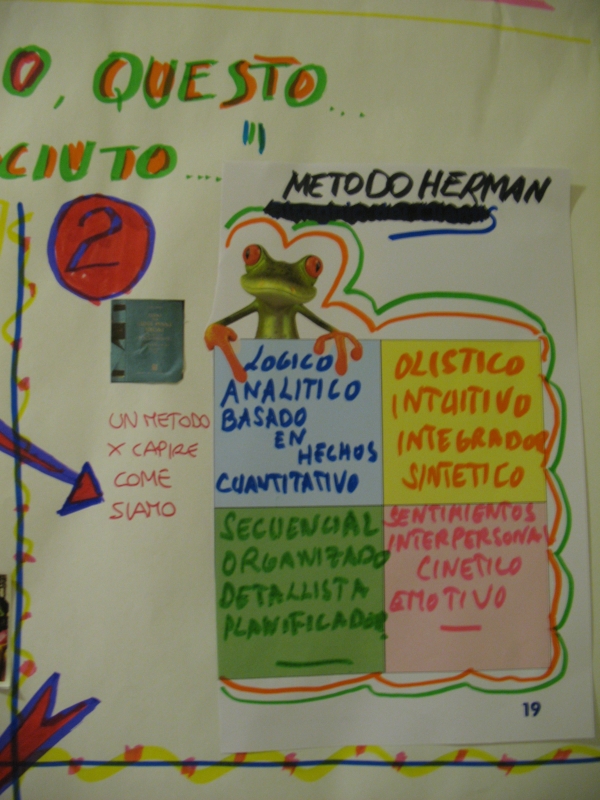 O, QUESTO...
CIUTO....
2
METODO HERMAN
UN METODO
X CAPIRE
COME
SIAMO
LOGICO
ANALITICO
BASADO
EN
HECHOS
CUANTITATIVO
OLISTICO
INTUITIVO
INTEGRADOR
SINTETICO
SECUENCIAL
ORGANIZADO
DETALLISTA
PLANIFICADOR
SENTIMIENTOS
INTERPERSONAL
CINETICO
EMOTIVO
19